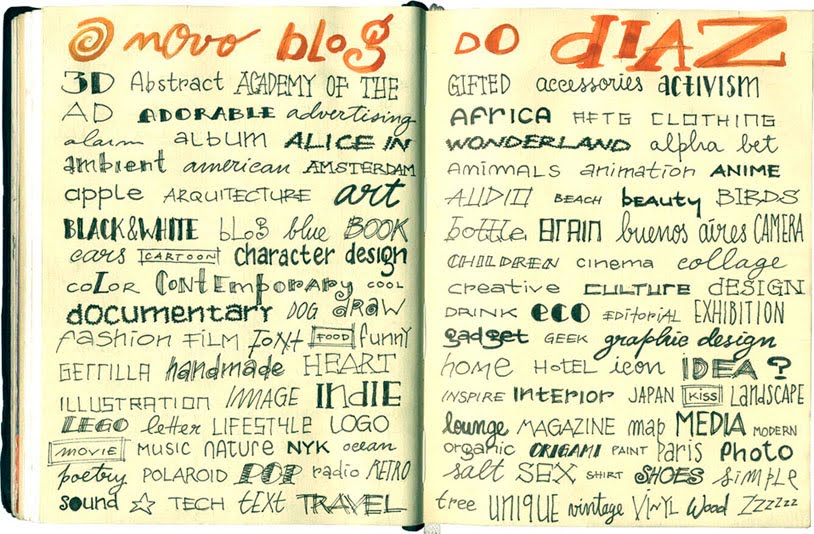 O novo blog DO DIAZ
3D Abstract ACADEMY OF THE GIFTED accessories ACTIVISM
AD ADORABLE advertising AFRICA CLOTHING
alarm album ALICE IN WONDERLAND alpha bet
ambient american AMSTERDAM ANIMALS animation ANIME
apple ARQUITECTURE art AUDIO BEACH beauty BIRDS
BLACK&WHITE bLoG blue BOOK bottle BRAIN buenos aires CAMERA
cars CARTOON character design CHILDREN cinema collage
coLoR Contemporary COOL creative CULTURE dESIGN
documentary DOG dRaW DRINK eco EDitoRiAL EXHIBITION
fashion FILM FoNt FOOD funny gadget GEEK graphic design
GERRILLA handmade HEART home HoTEL icon IDEA ?
ILLUSTRATION IMAGE INDIE INSPIRE INterior JAPAN KISS LandSCAPE
LEGO letter LIFESTYLE LOGO lounge MAGAZINE map MEDIA MODERN
MOVIE MUSIC NATURE NYK ocean organic ORIGAMI PAINT PARIS Photo
poetry POLAROID POP radio RETRO salt SEX SHIRT SHOES simple
sound ☆ TECH tEXt TRAVEL tree UNIQUE vintage VINYL Wood ZZZZZZ